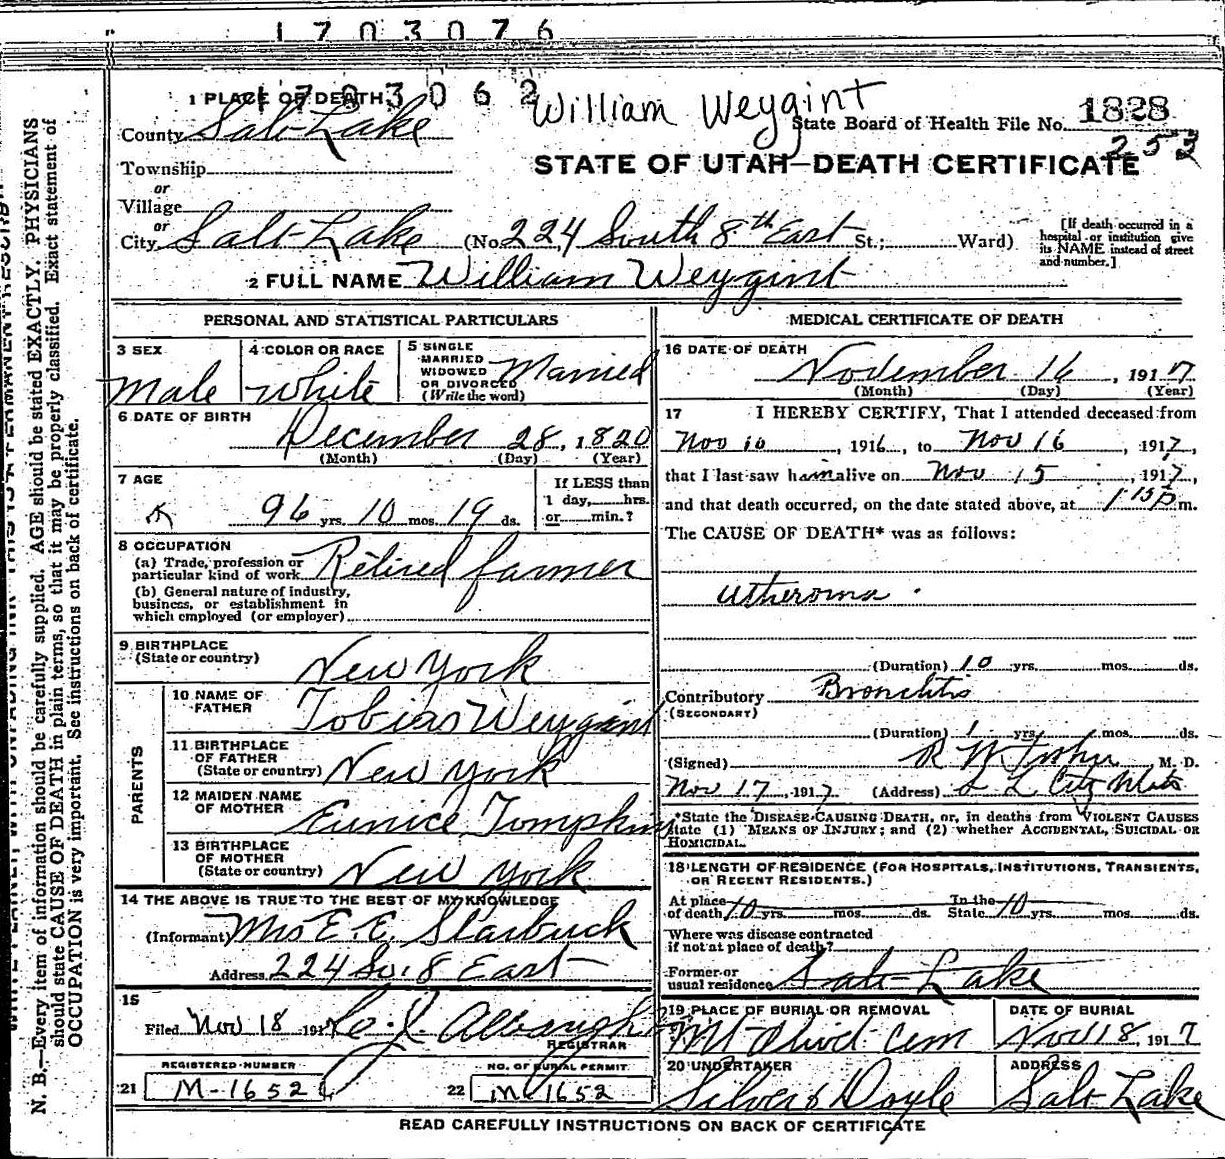 1703076
1703062
William Weygint
1 PLACE OF DEATH
County Salt Lake
State Board of Health File No. 1828
253
Township
STATE OF UTAH—DEATH CERTIFICATE
or
Village
or
City Salt Lake (No. 224 South 8th East St.; Ward)
[If death occurred in a
hospital or institution give
its NAME instead of street
and number.]
2 FULL NAME William Weygint
PERSONAL AND STATISTICAL PARTICULARS
3 SEX
Male
4 COLOR OR RACE
White
5 SINGLE
MARRIED
WIDOWED
OR DIVORCED
(Write the word)
Married
6 DATE OF BIRTH
December 28, 1820
(Month) (Day) (Year)
7 AGE
96 yrs. 10 mos. 19 ds.
If LESS than
1 day, hrs.
or min.?
8 OCCUPATION
(a) Trade, profession or
particular kind of work Retired farmer
(b) General nature of industry,
business, or establishment in
which employed (or employer)
9 BIRTHPLACE
(State or country)
New York
PARENTS
10 NAME OF
FATHER
Tobias Weygint
11 BIRTHPLACE
OF FATHER
(State or country) New York
12 MAIDEN NAME
OF MOTHER
Eunice Tompkins
13 BIRTHPLACE
OF MOTHER
(State or country) New York
14 THE ABOVE IS TRUE TO THE BEST OF MY KNOWLEDGE
(Informant) Mrs E. E. Starbuck
Address 224 So. 8 East
15
Filed Nov 18 191
REGISTRAR
REGISTERED NUMBER
21 M-1652
NO. OF BURIAL PERMIT
22 M 1652
MEDICAL CERTIFICATE OF DEATH
16 DATE OF DEATH
November 16, 1917
(Month) (Day) (Year)
17 I HEREBY CERTIFY, That I attended deceased from
Nov 10, 1916, to Nov 16, 1917,
that I last saw him alive on Nov 15, 1917,
and that death occurred, on the date stated above, at 1:15 p m.
The CAUSE OF DEATH* was as follows:
Atheroma.
(Duration) 10 yrs. mos. ds.
Contributory Bronchitis
(SECONDARY)
(Duration) 1 yrs. mos. ds.
(Signed) R W Fisher, M. D.
Nov 17, 1917 (Address) S L City Utah
*State the DISEASE CAUSING DEATH, or, in deaths from VIOLENT CAUSES
state (1) MEANS OF INJURY; and (2) whether ACCIDENTAL, SUICIDAL OR
HOMICIDAL.
18 LENGTH OF RESIDENCE (FOR HOSPITALS, INSTITUTIONS, TRANSIENTS,
OR RECENT RESIDENTS.)
At place In the
of death 10 yrs. mos. ds. State 10 yrs. mos. ds.
Where was disease contracted
if not at place of death?
Former or
usual residence Salt Lake
19 PLACE OF BURIAL OR REMOVAL
Mt Olivet Cem
DATE OF BURIAL
Nov 18, 1917
20 UNDERTAKER
Silver & Doyle
ADDRESS
Salt Lake
READ CAREFULLY INSTRUCTIONS ON BACK OF CERTIFICATE
N. B.—Every item of information should be carefully supplied. AGE should be stated EXACTLY. PHYSICIANS
should state CAUSE OF DEATH in plain terms, so that it may be properly classified. Exact statement of
OCCUPATION is very important. See instructions on back of certificate.